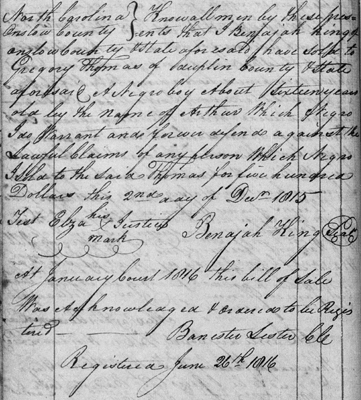 North Carolina } Know all men by these pres
Onslow County } ents that I Benajah King of
onslow County & State aforesaid have Sold to
Gregory Thomas of duplin County & State
aforesaid A Negro boy About Sixteen years
old by the Name of Arthur Which Negro
I do Warrant and forever defend against the
Lawful Claims of any person Which Negro
I Sold to the Said Thomas for five hundred
Dollars this 2nd day of Decr 1815
Test Elza his Justice Benajah King Seal
mark
At January Court 1816 this bill of Sale
Was Acknowledged & ordered to be Regis
tered Banester Lester Clk
Registered June 26th 1816